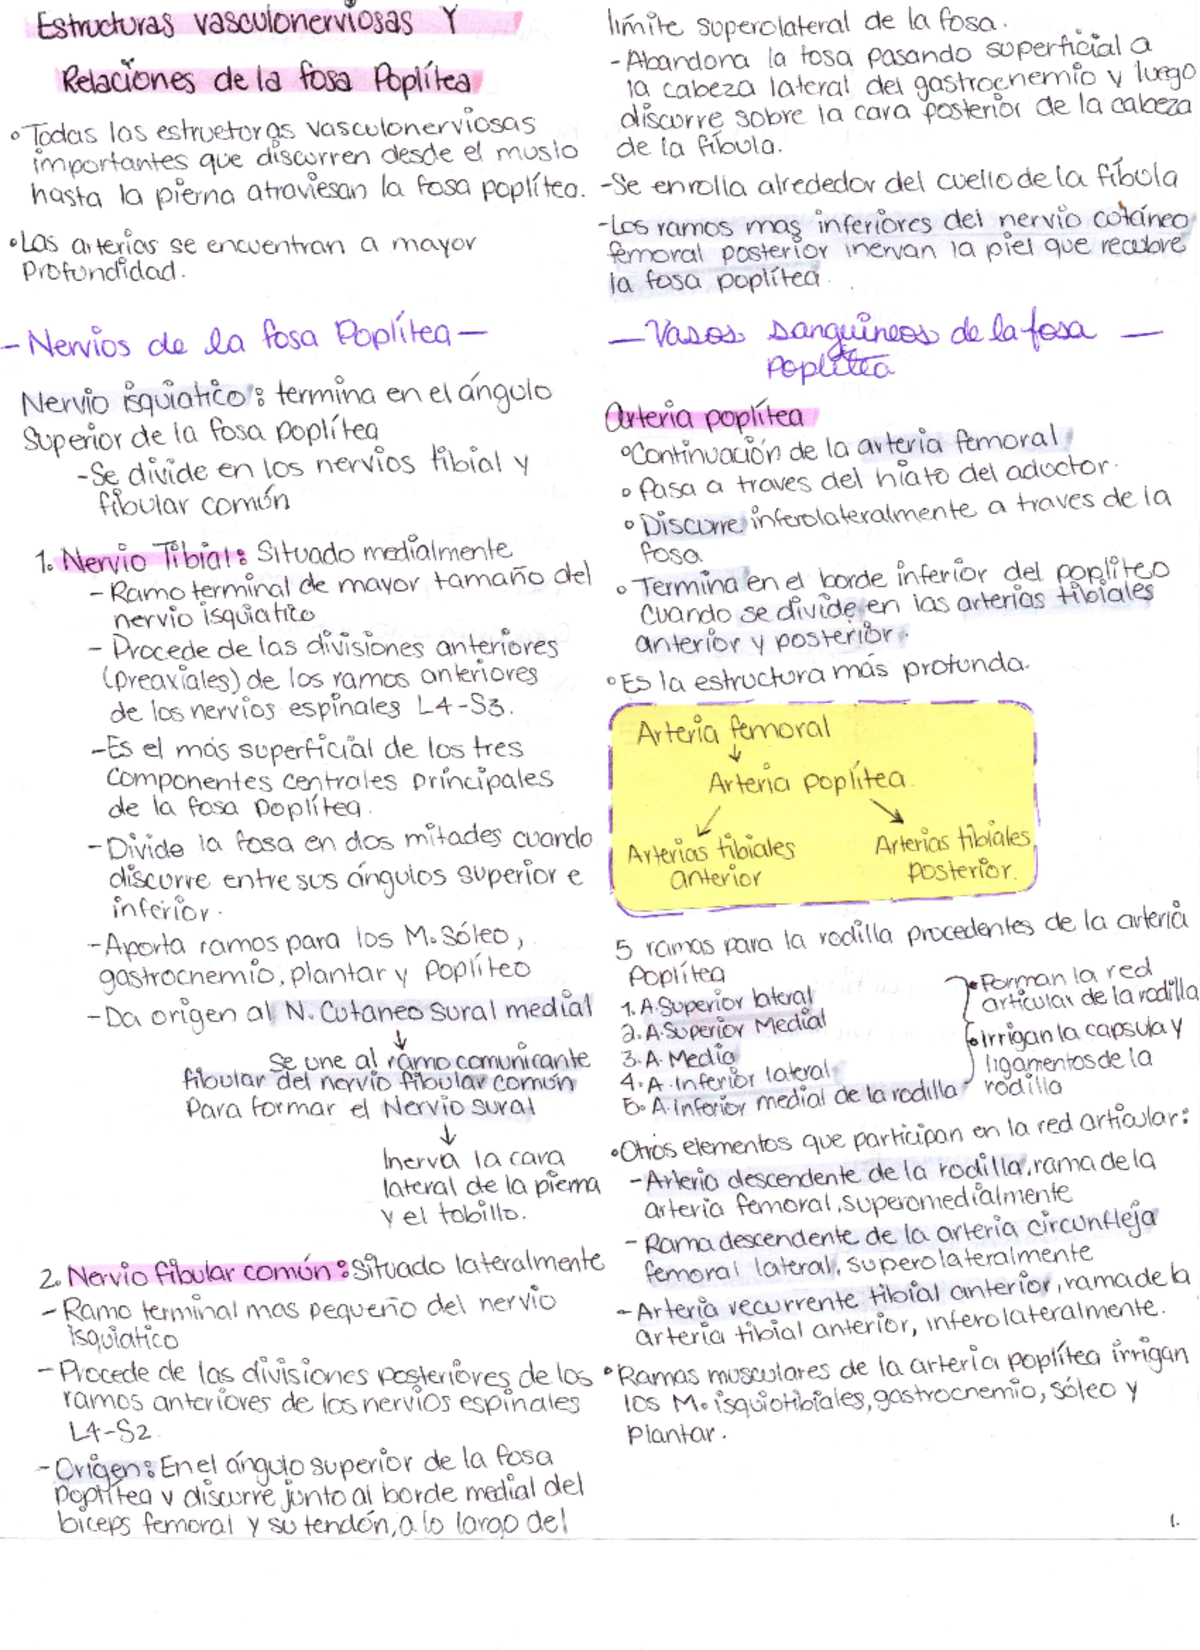 Estructuras vasculonerviosas Y
Relaciones de la fosa Poplítea
°Todas las estructuras vasculonerviosas
importantes que discurren desde el muslo
hasta la pierna atraviesan la fosa poplítea.
°Las arterias se encuentran a mayor
Profundidad.
- Nervios de la fosa Poplítea -
Nervio isquiatico: termina en el ángulo
Superior de la fosa poplítea
-Se divide en los nervios tibial y
fibular común
1. Nervio Tibial: Situado medialmente
- Ramo terminal de mayor tamaño del
nervio isquiatico
- Procede de las divisiones anteriores
(preaxiales) de los ramos anteriores
de los nervios espinales L4-S3.
-Es el más superficial de los tres
Componentes centrales principales
de la fosa poplítea.
-Divide la fosa en dos mitades cuando
discurre entre sus ángulos superior e
inferior.
-Aporta ramos para los M. Sóleo,
gastrocnemio, plantar y Poplíteo
-Da origen al N. Cutaneo sural medial
↓
Se une al ramo comunicante
fibular del nervio fibular común
Para formar el Nervio sural
↓
Inerva la cara
lateral de la pierna
y el tobillo.
2. Nervio fibular común: Situado lateralmente
- Ramo terminal mas pequeño del nervio
isquiatico
-Procede de las divisiones posteriores de los
ramos anteriores de los nervios espinales
L4-S2
-Origen: En el ángulo superior de la fosa
Poplítea y discurre junto al borde medial del
biceps femoral y su tendón, a lo largo del
límite superolateral de la fosa.
-Abandona la fosa pasando superficial a
la cabeza lateral del gastrocnemio y luego
discurre sobre la cara posterior de la cabeza
de la fíbula.
-Se enrolla alrededor del cuello de la fíbula
-Los ramos mas inferiores del nervio cutáneo
femoral posterior inervan la piel que recubre
la fosa poplítea.
- Vasos sanguíneos de la fosa -
Poplítea
Arteria poplítea
°Continuación de la arteria femoral
° Pasa a traves del hiato del aductor.
° Discurre inferolateralmente a traves de la
fosa
° Termina en el borde inferior del popliteo
Cuando se divide en las arterias tibiales
anterior y posterior.
°Es la estructura más profunda.
Arteria femoral
↓
Arteria poplítea
↙ ↘
Arterias tibiales
anterior
Arterias tibiales
Posterior.
5 ramas para la rodilla procedentes de la arteria
Poplítea
1. A. Superior lateral
2. A. Superior Medial
3. A. Media
4. A. Inferior lateral
5. A. Inferior medial de la rodilla
•Forman la red
articular de la rodilla
•Irrigan la capsula y
ligamentos de la
rodilla
°Otros elementos que participan en la red articular:
-Arteria descendente de la rodilla, rama de la
arteria femoral, superomedialmente
- Rama descendente de la arteria circunfleja
femoral lateral, superolateralmente
-Arteria recurrente tibial anterior, rama de la
arteria tibial anterior, inferolateralmente.
°Ramas musculares de la arteria poplítea irrigan
los M. isquiotibiales, gastrocnemio, sóleo y
Plantar.
1.